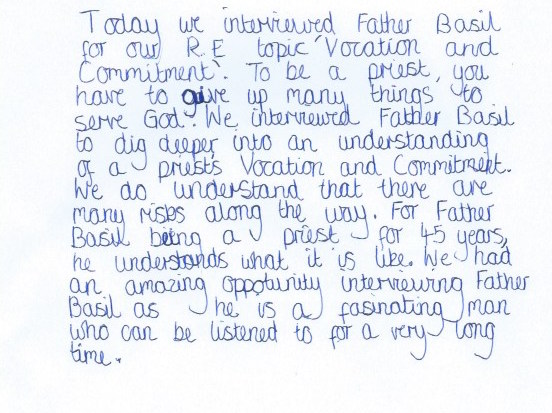 Today we interviewed Father Basil
for our R.E topic 'Vocation and
Commitment'. To be a priest, you
have to give up many things to
serve God. We interviewed Father Basil
to dig deeper into an understanding
of a priest's Vocation and Commitment.
We do understand that there are
many risks along the way. For Father
Basil being a priest for 45 years,
he understands what it is like. We had
an amazing oppotunity interviewing Father
Basil as he is a fasinating man
who can be listened to for a very long
time.